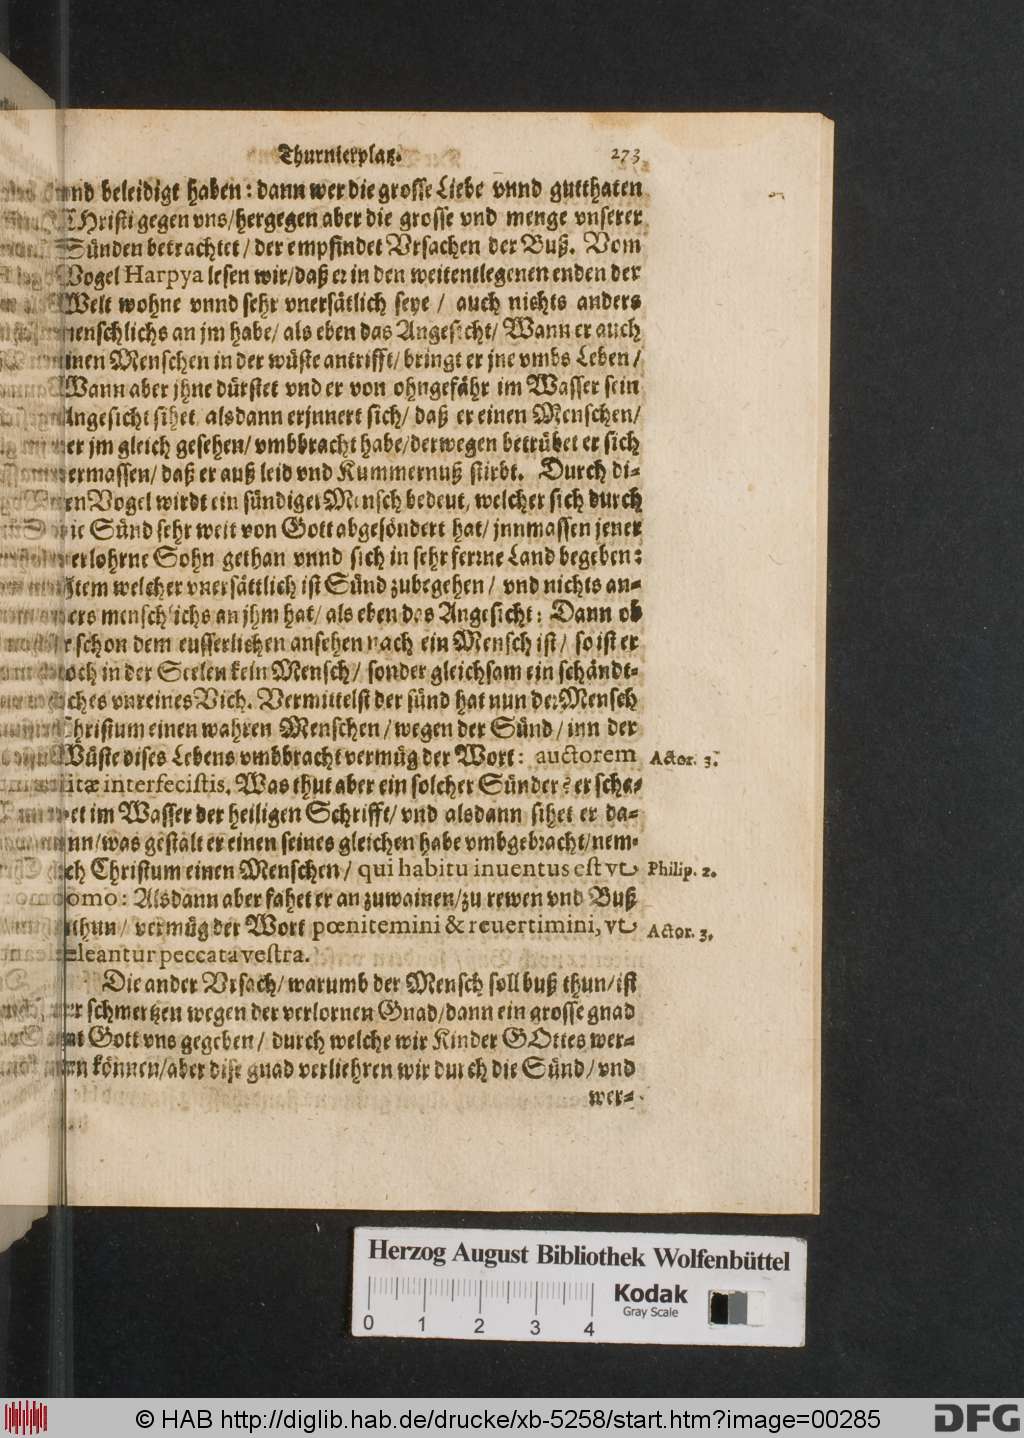 Thurnierplatz. 273
nd beleidigt haben: dann wer die grosse Liebe vnnd gutthaten
Hristi gegen vns/hergegen aber die grosse vnd menge vnserer
Sünden betrachtet/ der empfindet Vrsachen der Buß. Vom
Vogel Harpya lesen wir/daß er in den weitentlegenen enden der
Welt wohne vnnd sehr vnersätlich seye/ auch nichts anders
enschlichs an jm habe/ als eben das Angesicht/ Wann er auch
inen Menschen in der wüste antrifft/ bringt er jne vmbs Leben/
Wann aber jhne dürstet vnd er von ohngefähr im Wasser sein
Angesicht sihet alsdann erjnnert sich/ daß er einen Menschen/
er jm gleich gesehen/ vmbbracht habe/derwegen betrübet er sich
ermassen/ daß er auß leid vnd Kummernuß stirbt. Durch di-
en Vogel wirdt ein sündiger Mensch bedeut, welcher sich durch
ie Sünd sehr weit von Gott abgesöndert hat/ jnnmassen jener
erlohrne Sohn gethan vnnd sich in sehr ferrne Land begeben:
Item welcher vnersättlich ist Sünd zubegehen/ vnd nichts an-
ers menschlichs an jhm hat/ als eben das Angesicht: Dann ob
r schon dem eusserlichen ansehen nach ein Mensch ist/ so ist er
och in der Seelen kein Mensch/ sonder gleichsam ein schändt-
ches vnreines Vich. Vermittelst der sünd hat nun der Mensch
hristum einen wahren Menschen/ wegen der Sünd/ inn der
Wüste dises Lebens vmbbracht vermüg der Wort: auctorem Actor. 3.
itæ interfecistis. Was thut aber ein solcher Sünder? er scha-
et im Wasser der heiligen Schrifft/ vnd alsdann sihet er da-
nn/was gestalt er einen seines gleichen habe vmbgebracht/nem-
ch Christum einen Menschen/ qui habitu inuentus est vt Philip. 2.
omo: Alsdann aber fahet er an zuwainen/zu rewen vnd Buß
thun/ vermüg der Wort pœnitemini & reuertimini, vt Actor. 3.
eleantur peccata vestra.
Die ander Vrsach/ warumb der Mensch soll buß thun/ist
er schmertzen wegen der verlornen Gnad/dann ein grosse gnad
at Gott vns gegeben/ durch welche wir Kinder GOttes wer-
en können/aber dise gnad verliehren wir durch die Sünd/ vnd
wer-
Herzog August Bibliothek Wolfenbüttel
0 1 2 3 4
Kodak
Gray Scale
© HAB http://diglib.hab.de/drucke/xb-5258/start.htm?image=00285
DFG